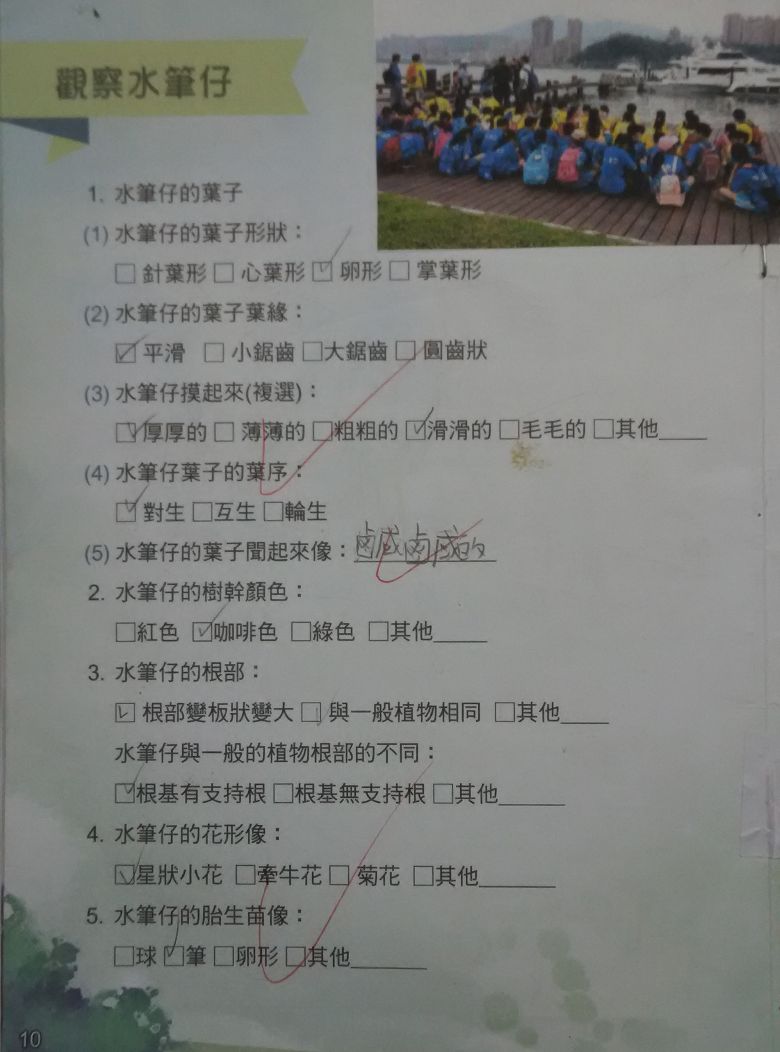 觀察水筆仔
1. 水筆仔的葉子
(1) 水筆仔的葉子形狀：
□ 針葉形 □ 心葉形 ☑ 卵形 □ 掌葉形
(2) 水筆仔的葉子葉緣：
☑ 平滑 □ 小鋸齒 □大鋸齒 □ 圓齒狀
(3) 水筆仔摸起來(複選)：
☑厚厚的 □ 薄薄的 □粗粗的 ☑滑滑的 □毛毛的 □其他____
(4) 水筆仔葉子的葉序：
☑ 對生 □互生 □輪生
(5) 水筆仔的葉子聞起來像：鹹鹹的
2. 水筆仔的樹幹顏色：
□紅色 ☑咖啡色 □綠色 □其他____
3. 水筆仔的根部：
☑ 根部變板狀變大 □ 與一般植物相同 □其他____
水筆仔與一般的植物根部的不同：
☑根基有支持根 □根基無支持根 □其他____
4. 水筆仔的花形像：
☑星狀小花 □牽牛花 □ 菊花 □其他____
5. 水筆仔的胎生苗像：
□球 ☑筆 □卵形 □其他____
10